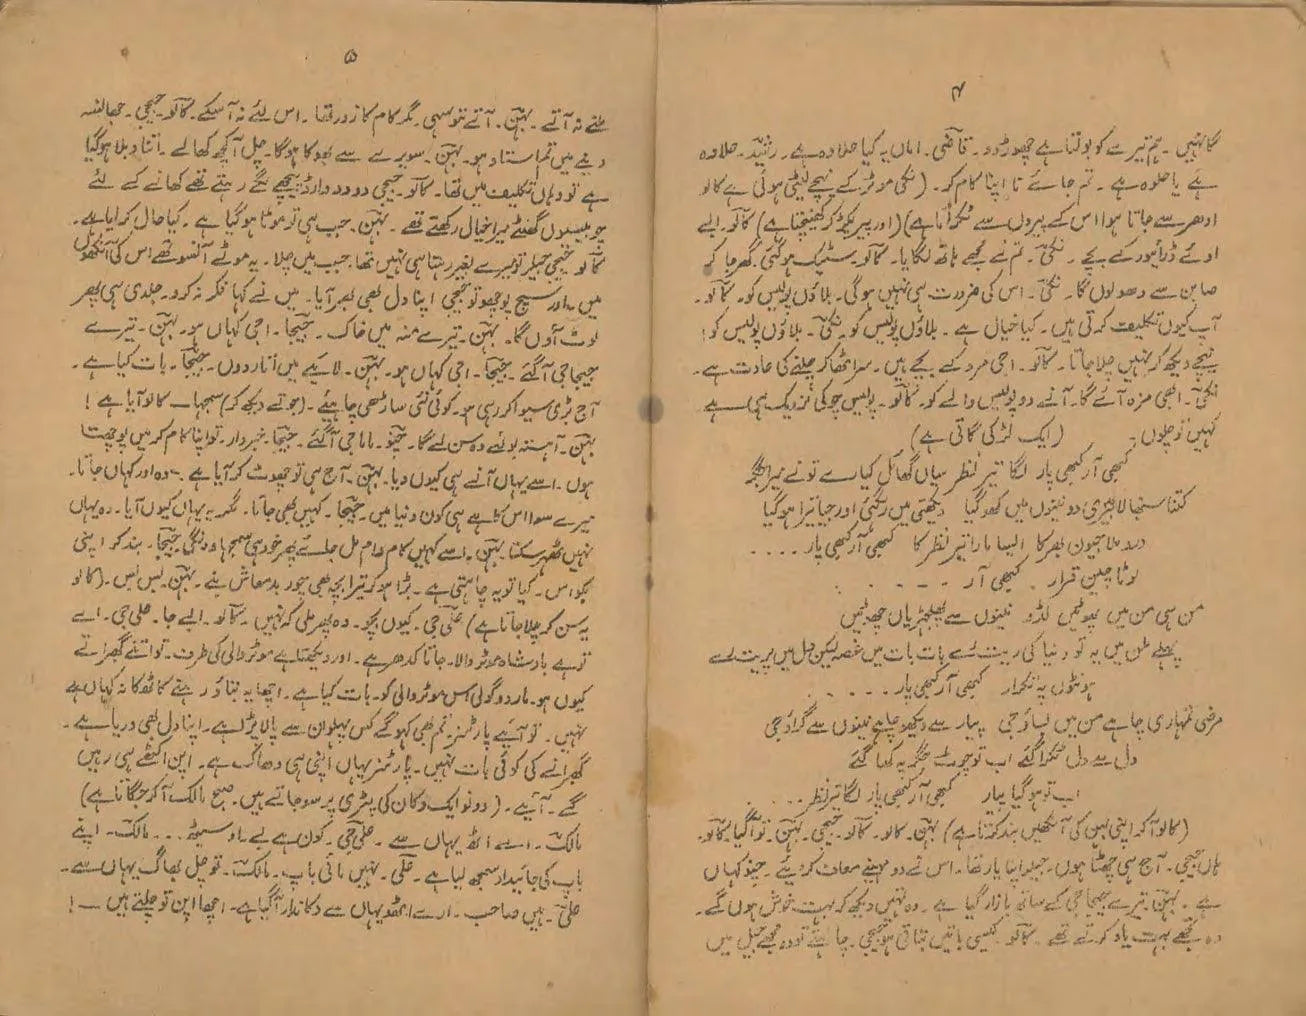 ۴
گا نہیں۔ تم تیرے کو بولتا ہے چھوڑ دو۔ قاضی۔ اماں یہ کیا حلاوہ ہے۔ رشید۔ حلاوہ
ہے یا حلوہ ہے۔ تم جائے تا اپنا کام کو۔ (نکی موٹر کے نیچے لیٹی ہوئی ہے کالو
ادھر سے جاتا ہوا اس کے پیروں سے ٹکراتا ہے) (اور پیر پکڑ کر کھینچتا ہے) کالو۔ ابے
اوئے ڈرائیور کے بچے۔ نکی۔ تم نے مجھے ہاتھ لگایا۔ کالو۔ مسٹیک ہو گئی گھر جا کر
صابن سے دھو لوں گا۔ نکی۔ اس کی ضرورت ہی نہیں ہوگی۔ بلاؤں پولیس کو۔ کالو۔
آپ کیوں تکلیف کرتی ہیں۔ کیا خیال ہے۔ بلاؤں پولیس کو نکی۔ بلاؤں پولیس کو!
نیچے دیکھ کر نہیں چلا جاتا۔ کالو۔ اجی مرد کے بچے ہیں۔ سر اٹھا کر چلنے کی عادت ہے۔
نکی۔ ابھی مزہ آئے گا۔ آنے دو پولیس والے کو۔ کالو۔ پولیس چوکی نزدیک ہی ہے
کہیں تو چلوں۔ (ایک لڑکی گاتی ہے)
کبھی آر کبھی پار لاگا تیر نظر سیاں گھائل کیا رے تو نے میرا جگر
کتنا سنبھالا بیری دو نینوں میں کھو گیا دیکھتی میں رہ گئی اور جیا تیرا ہو گیا
درد ملا جیون بھر کا ایسا مارا تیر نظر کا کبھی آر کبھی پار ....
لوٹا چین قرار۔ کبھی آر ....
من ہی من میں پھوٹیں لڈو نینوں سے پھلجھڑیاں چھوٹیں
پہلے ملن میں یہ تو دنیا کی ریت ہے بات بات میں غصہ لیکن دل میں پریت ہے
ہونٹوں پہ تکرار کبھی آر کبھی پار .....
مرضی تمہاری چاہے من میں بساؤ جی پیار سے دیکھو چاہے نینوں سے گراؤ جی
دل سے دل ٹکرا گئے اب تو چوٹ جگر پہ کھا گئے
اب تو ہو گیا پیار کبھی آر کبھی پار لاگا تیر نظر ....
(کالو آ کر اپنی بہن کی آنکھیں بند کرتا ہے) بہن۔ کالو۔ کالو۔ جیجی۔ بہن۔ تو آ گیا۔ کالو۔
ہاں جیجی۔ آج ہی چھٹا ہوں۔ جیلر اپنا یار تھا۔ اس نے دو مہینے معاف کرائیے۔ چنو کہاں
ہے۔ بہن۔ تیرے جیجا جی کے ساتھ بازار گیا ہے۔ وہ تمہیں دیکھ کر بہت خوش ہوں گے۔
وہ تجھے بہت یاد کرتے تھے۔ کالو۔ کیسی باتیں بناتی ہو جیجی۔ چاہتے تو وہ مجھے جیل میں
۵
ملنے نہ آتے۔ بہن۔ آتے تو سہی۔ مگر کام کا زور تھا۔ اس لئے نہ آ سکے۔ کالو۔ جیجی۔ جھانسہ
دینے میں تم استاد ہو۔ بہن۔ سویرے سے بھوکا ہوگا۔ چل آ کچھ کھا لے۔ اتنا دبلا ہو گیا
ہے تو وہاں تکلیف میں تھا۔ کالو۔ جیجی دو دو وارڈ پیچھے لگے رہتے تھے کھانے کے لئے
چوبیسوں گھنٹے میرا خیال رکھتے تھے۔ بہن۔ جب ہی تو موٹا ہو گیا ہے۔ کیا حال کر آیا ہے۔
کالو جیجی جیلر تو میرے بغیر رہتا ہی نہیں تھا۔ جب میں چلا۔ یہ موٹے آنسو تھے اس کی آنکھوں
میں۔ اور سچ پوچھو تو جیجی اپنا دل بھی بھر آیا۔ میں نے کہا فکر نہ کرو۔ جلدی ہی پھر
لوٹ آؤں گا۔ بہن۔ تیرے منہ میں خاک۔ جیجا۔ اجی کہاں ہو۔ بہن۔ تیرے
جیجا جی آ گئے۔ جیجا۔ اجی کہاں ہو۔ بہن۔ لائیے میں اتار دوں۔ جیجا۔ بات کیا ہے۔
آج بڑی سیوا کر رہی ہو۔ کوئی نئی ساڑھی چاہئیے۔ (جوتے دیکھ کر) سمجھا۔ کالو آیا ہے!
بہن۔ آہستہ بولئے وہ سن لے گا۔ چنو۔ ماما جی آ گئے۔ جیجا۔ خبردار۔ تو اپنا کام کر میں پوچھتا
ہوں۔ اسے یہاں آنے ہی کیوں دیا۔ بہن۔ آج ہی تو چھوٹ کر آیا ہے۔ وہ اور کہاں جاتا۔
تیرے سوا اس کا ہے ہی کون دنیا میں۔ جیجا۔ کہیں بھی جاتا۔ مگر یہ یہاں کیوں آیا۔ وہ یہاں
نہیں ٹھہر سکتا۔ بہن۔ اسے کہیں کام وام مل جائے پھر خود ہی سمجھا دونگی۔ جیجا۔ بند کرو اپنی
بکواس۔ کیا تو یہ چاہتی ہے۔ بڑا ہو کر تیرا بچہ بھی چور بدمعاش بنے۔ بہن۔ بس بس۔ (کالو
یہ سن کر چلا جاتا ہے) علی جی۔ کیوں بچو۔ وہ پھر ملی کہ نہیں۔ کالو۔ ابے جا۔ علی جی۔ ابے
تو ہے بادشاہ موٹر والا۔ جاتا کدھر ہے۔ اور دیکھتا ہے موٹر والی کی طرف۔ تو اتنے گھبراتے
کیوں ہو۔ مارو گولی اس موٹر والی کو۔ بات کیا ہے۔ اچھا یہ بتاؤ رہنے کا ٹھکانہ کہاں ہے
نہیں۔ تو آئیے پارٹنر۔ تم بھی کہو گے کس پہلوان سے پالا پڑا ہے۔ اپنا دل بھی دریا ہے۔
گھبرانے کی کوئی بات نہیں۔ پارٹنر یہاں اپنی ہی دھاک ہے۔ اپن اکٹھے ہی رہیں
گے۔ آئیے۔ (دونو ایک دوکان کی پٹڑی پر سو جاتے ہیں۔ صبح مالک آ کر جگاتا ہے)
مالک۔ ابے اٹھ یہاں سے۔ علی جی۔ کون ہے بے۔ او سیٹھ... مالک۔ اپنے
باپ کی جائیداد سمجھ لیا ہے۔ علی۔ نہیں مائی باپ۔ مالک۔ تو چل بھاگ یہاں سے۔
علی۔ ہیں صاحب۔ ارے اٹھو یہاں سے دکاندار آ گیا ہے۔ اچھا اپن تو چلتے ہیں —!